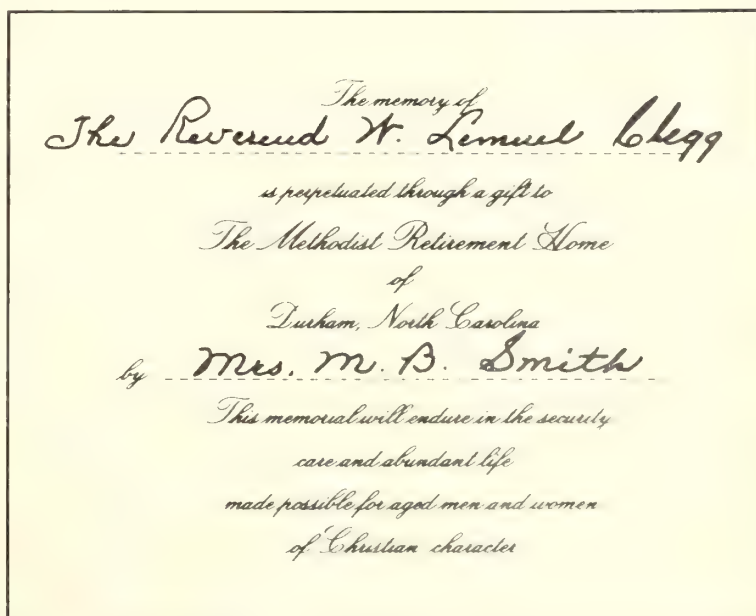 The memory of
The Reverend W. Lemuel Clegg
is perpetuated through a gift to
The Methodist Retirement Home
of
Durham, North Carolina
by Mrs. M. B. Smith
This memorial will endure in the security
care and abundant life
made possible for aged men and women
of Christian character